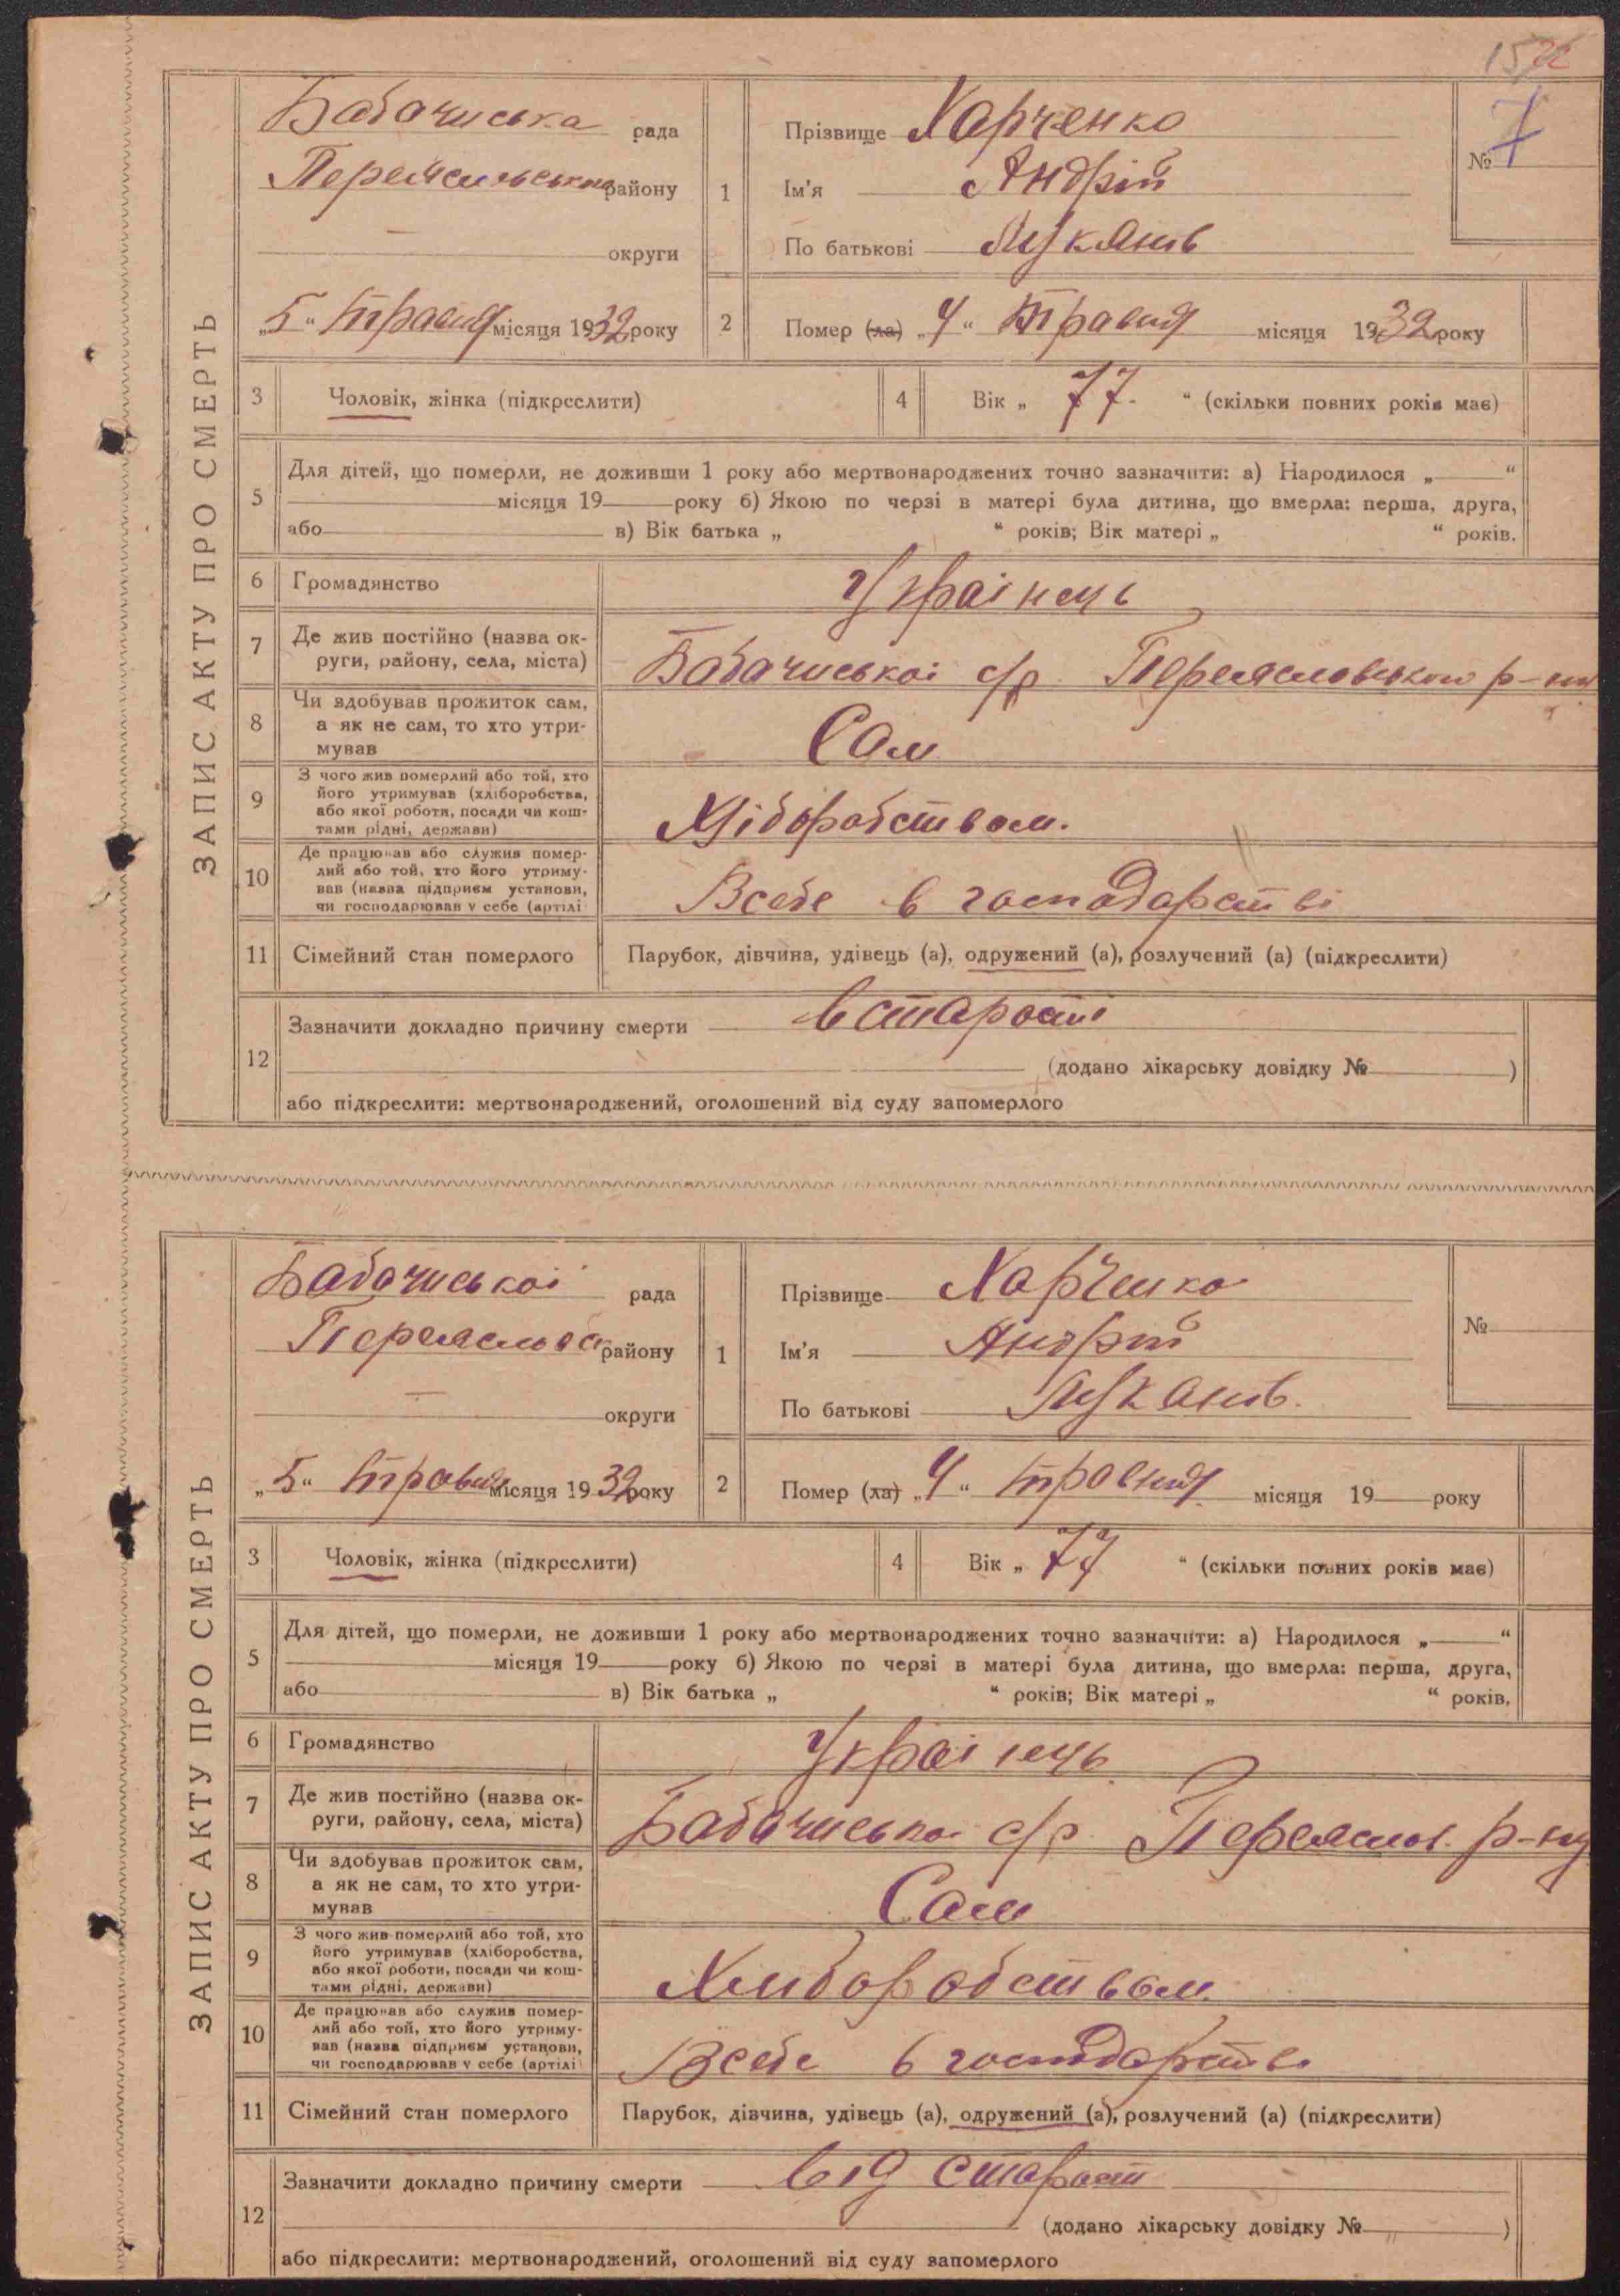 1522
ЗАПИС АКТУ ПРО СМЕРТЬ
Бабачиська рада
Переяславського району
— округи
„5“ травня місяця 1932 року
1
Прізвище Харченко
Ім'я Андрій
По батькові Лукянів
№ 7
2
Помер (ла) „4“ травня місяця 1932 року
3 Чоловік, жінка (підкреслити)
4 Вік „77“ (скільки повних років має)
5 Для дітей, що померли, не доживши 1 року або мертвонароджених точно зазначити: а) Народилося „ “
місяця 19 року б) Якою по черзі в матері була дитина, що вмерла: перша, друга,
або в) Вік батька „ “ років; Вік матері „ “ років.
6 Громадянство Українець
7 Де жив постійно (назва ок-
руги, району, села, міста) Бабачиської с/р Переясловського р-ну
8 Чи здобував прожиток сам,
а як не сам, то хто утри-
мував Сам
9 З чого жив померлий або той, хто
його утримував (хліборобства,
або якої роботи, посади чи кош-
тами рідні, держави) Хліборобством.
10 Де працював або служив помер-
лий або той, хто його утриму-
вав (назва підприєм установи,
чи господарював у себе (артілі Всебе в господарстві
11 Сімейний стан померлого Парубок, дівчина, удівець (а), одружений (а), розлучений (а) (підкреслити)
12 Зазначити докладно причину смерти в старості
(додано лікарську довідку № )
або підкреслити: мертвонароджений, оголошений від суду запомерлого
ЗАПИС АКТУ ПРО СМЕРТЬ
Бабачиської рада
Переяслвс району
— округи
„5“ травня місяця 1932 року
1
Прізвище Харченко
Ім'я Андрій
По батькові Лукянів.
№
2
Помер (ла) „4“ травня місяця 19 року
3 Чоловік, жінка (підкреслити)
4 Вік „77“ (скільки повних років має)
5 Для дітей, що померли, не доживши 1 року або мертвонароджених точно зазначити: а) Народилося „ “
місяця 19 року б) Якою по черзі в матері була дитина, що вмерла: перша, друга,
або в) Вік батька „ “ років; Вік матері „ “ років.
6 Громадянство Українець
7 Де жив постійно (назва ок-
руги, району, села, міста) Бабачиської с/р Переяслов. р-ну
8 Чи здобував прожиток сам,
а як не сам, то хто утри-
мував Сам
9 З чого жив померлий або той, хто
його утримував (хліборобства,
або якої роботи, посади чи кош-
тами рідні, держави) Хлиборобством.
10 Де працював або служив помер-
лий або той, хто його утриму-
вав (назва підприєм установи,
чи господарював у себе (артілі Всебе в господарстві
11 Сімейний стан померлого Парубок, дівчина, удівець (а), одружений (а), розлучений (а) (підкреслити)
12 Зазначити докладно причину смерти від старост
(додано лікарську довідку № )
або підкреслити: мертвонароджений, оголошений від суду запомерлого